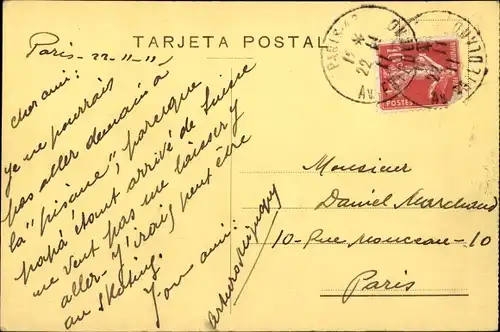 TARJETA POSTAL
Paris - 22-11-11
cher ami:
Je ne pourrais
pas aller demain à
la "piscine", parceque
papá étant arrivé de Suisse
ne veut pas me laisser y
aller - J'irais peut être
au Skating.
Ton ami:
Arturo
Monsieur
Daniel Marchand
10 - Rue Monceau - 10
Paris
PARIS
22
11
10
POSTES